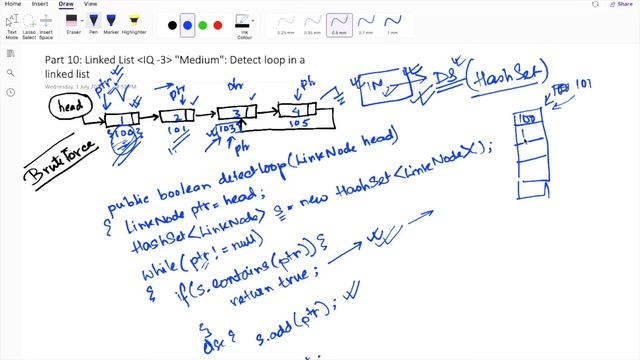 Home Insert Draw View
Eraser Pen Marker Highlighter
Text Mode Lasso Select Insert Space
0.25 mm 0.35 mm 0.5 mm 0.7 mm 1 mm
Part 10: Linked List <IQ -3> "Medium": Detect loop in a linked list
Wednesday, 1 July
ptr ptr ptr ptr
head 1 2 3 4
100 101 103 105
DS (HashSet)
101
100
1
Brute Force
public boolean detectloop(LinkNode head)
{ LinkNode ptr = head;
HashSet<LinkNode> s = new HashSet<LinkNode>();
while(ptr != null)
{ if(s.contains(ptr)){
return true;
}
else { s.add(ptr);